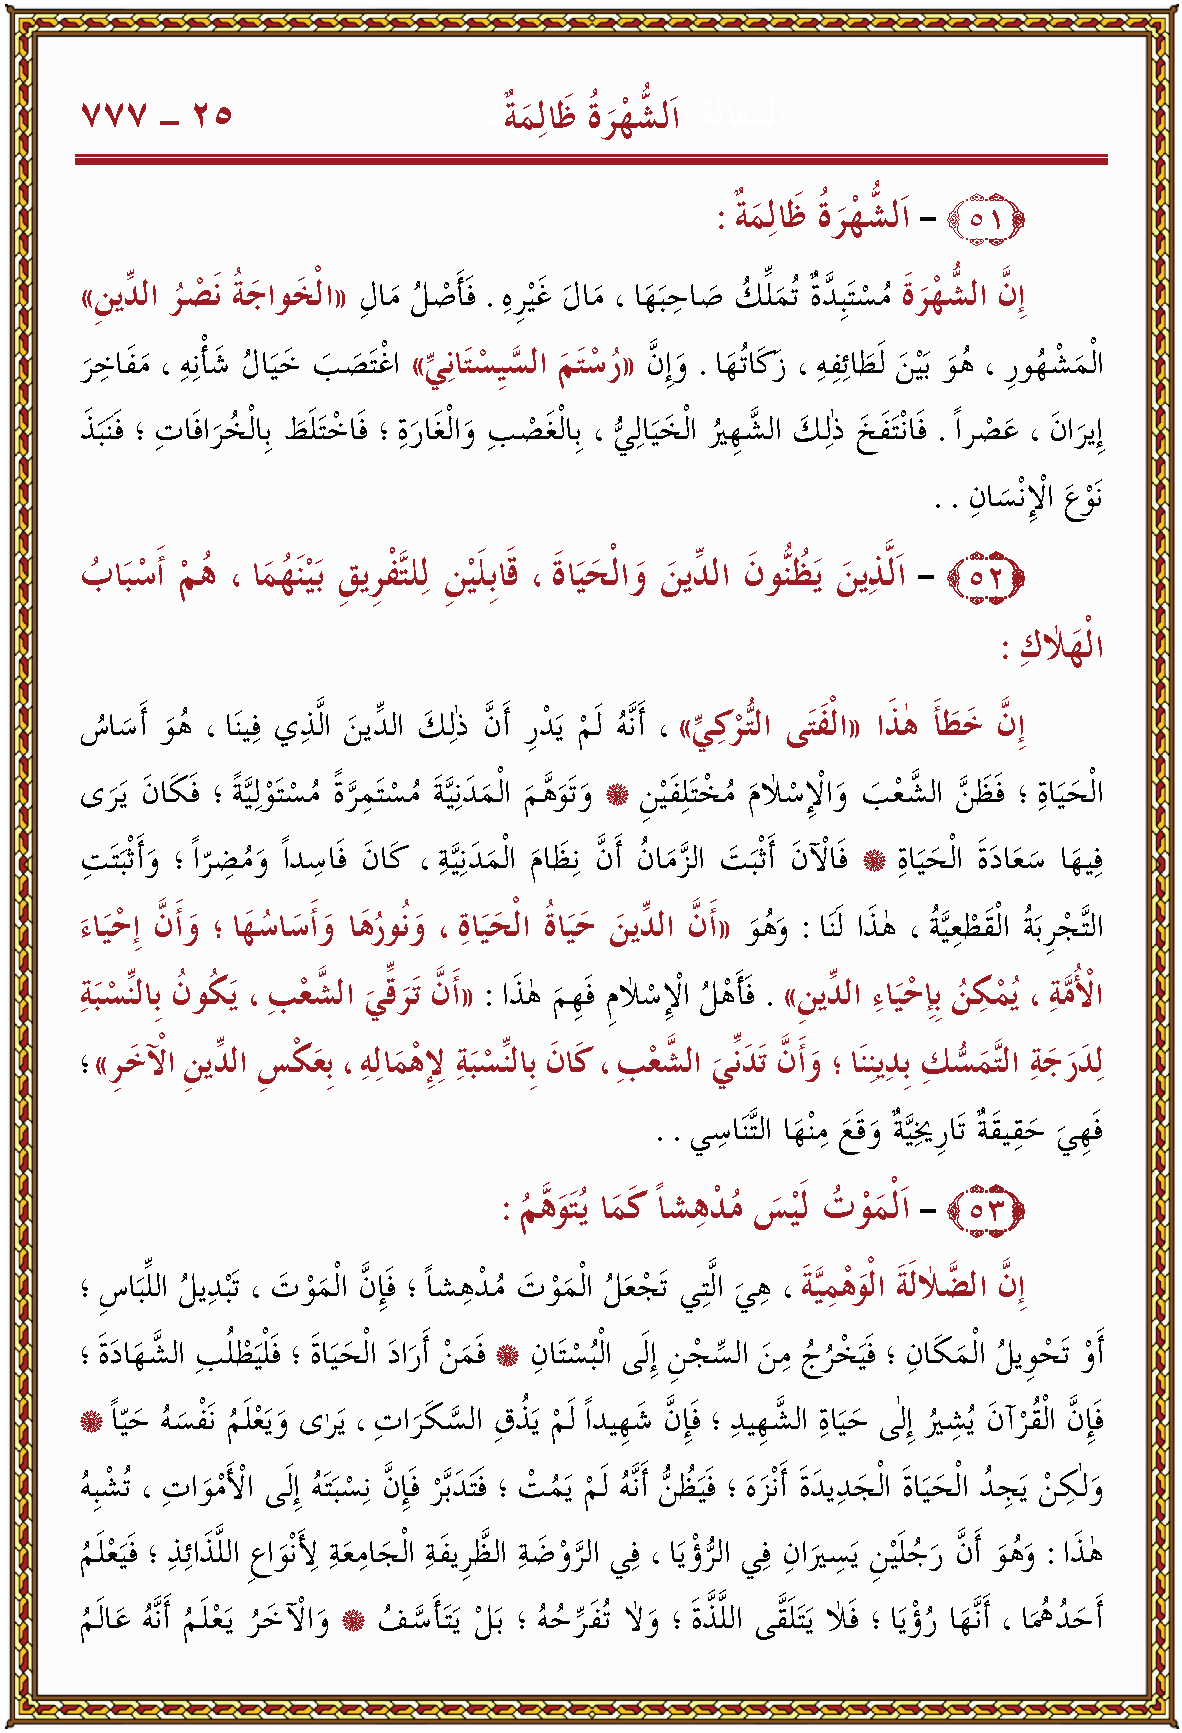 اَلشُّهْرَةُ ظَالِمَةٌ ٢٥ ـ ٧٧٧
﴿٥١﴾ - اَلشُّهْرَةُ ظَالِمَةٌ :
إِنَّ الشُّهْرَةَ مُسْتَبِدَّةٌ تُمَلِّكُ صَاحِبَهَا ، مَالَ غَيْرِهِ . فَأَصْلُ مَالِ «الْخَواجَةُ نَصْرُ الدِّينِ»
الْمَشْهُورِ ، وَهُوَ بَيْنَ لَطَائِفِهِ ، زَكَاتُهَا . وَإِنَّ «رُسْتَمَ السِّيسْتَانِيِّ» اغْتَصَبَ خَيَالُ شَأْنِهِ ، مَفَاخِرَ
إِيرَانَ ، عَصْراً . فَانْتَفَخَ ذٰلِكَ الشَّهِيرُ الْخَيَالِيُّ ، بِالْغَصْبِ وَالْغَارَةِ ؛ فَاخْتَلَطَ بِالْخُرَافَاتِ ؛ فَنَبَذَ
نَوْعَ الْإِنْسَانِ . .
﴿٥٢﴾ - اَلَّذِينَ يَظُنُّونَ الدِّينَ وَالْحَيَاةَ ، قَابِلَيْنِ لِلتَّفْرِيقِ بَيْنَهُمَا ، هُمْ أَسْبَابُ
الْهَلَاكِ :
إِنَّ خَطَأَ هٰذَا «الْفَتَى التُّرْكِيِّ» ، أَنَّهُ لَمْ يَدْرِ أَنَّ ذٰلِكَ الدِّينَ الَّذِي فِينَا ، هُوَ أَسَاسُ
الْحَيَاةِ ؛ فَظَنَّ الشَّعْبَ وَالْإِسْلَامَ مُخْتَلِفَيْنِ ۞ وَتَوَهَّمَ الْمَدَنِيَّةَ مُسْتَمِرَّةً مُسْتَوْلِيَّةً ؛ فَكَانَ يَرَى
فِيهَا سَعَادَةَ الْحَيَاةِ ۞ فَالْآنَ أَثْبَتَ الزَّمَانُ أَنَّ نِظَامَ الْمَدَنِيَّةِ ، كَانَ فَاسِداً وَمُضِرّاً ؛ وَأَثْبَتَتِ
التَّجْرِبَةُ الْقَطْعِيَّةُ ، هٰذَا لَنَا : وَهُوَ «أَنَّ الدِّينَ حَيَاةُ الْحَيَاةِ ، وَنُورُهَا وَأَسَاسُهَا ؛ وَأَنَّ إِحْيَاءَ
الْأُمَّةِ ، يُمْكِنُ بِإِحْيَاءِ الدِّينِ» . فَأَهْلُ الْإِسْلَامِ فَهِمَ هٰذَا : «أَنَّ تَرَقِّيَ الشَّعْبِ ، يَكُونُ بِالنِّسْبَةِ
لِدَرَجَةِ التَّمَسُّكِ بِدِينِنَا ؛ وَأَنَّ تَدَنِّيَ الشَّعْبِ ، كَانَ بِالنِّسْبَةِ لِإِهْمَالِهِ ، بِعَكْسِ الدِّينِ الْآخَرِ» ؛
فَهِيَ حَقِيقَةٌ تَارِيخِيَّةٌ وَقَعَ مِنْهَا التَّنَاسِي . .
﴿٥٣﴾ - اَلْمَوْتُ لَيْسَ مُدْهِشاً كَمَا يُتَوَهَّمُ :
إِنَّ الضَّلَالَةَ الْوَهْمِيَّةَ ، هِيَ الَّتِي تَجْعَلُ الْمَوْتَ مُدْهِشاً ؛ فَإِنَّ الْمَوْتَ ، تَبْدِيلُ اللِّبَاسِ ؛
أَوْ تَحْوِيلُ الْمَكَانِ ؛ فَيَخْرُجُ مِنَ السِّجْنِ إِلَى الْبُسْتَانِ ۞ فَمَنْ أَرَادَ الْحَيَاةَ ؛ فَلْيَطْلُبِ الشَّهَادَةَ ؛
فَإِنَّ الْقُرْآنَ يُشِيرُ إِلٰى حَيَاةِ الشَّهِيدِ ؛ فَإِنَّ شَهِيداً لَمْ يَذُقِ السَّكَرَاتِ ، يَرٰى وَيَعْلَمُ نَفْسَهُ حَيّاً ۞
وَلٰكِنْ يَجِدُ الْحَيَاةَ الْجَدِيدَةَ أَنْزَهَ ؛ فَيَظُنُّ أَنَّهُ لَمْ يَمُتْ ؛ فَتَدَبَّرْ فَإِنَّ نِسْبَتَهُ إِلَى الْأَمْوَاتِ ، تُشْبِهُ
هٰذَا : وَهُوَ أَنَّ رَجُلَيْنِ يَسِيرَانِ فِي الرُّؤْيَا ، فِي الرَّوْضَةِ الظَّرِيفَةِ الْجَامِعَةِ لِأَنْوَاعِ اللَّذَائِذِ ؛ فَيَعْلَمُ
أَحَدُهُمَا ، أَنَّهَا رُؤْيَا ؛ فَلَا يَتَلَقَّى اللَّذَّةَ ؛ وَلَا تُفَرِّحُهُ ؛ بَلْ يَتَأَسَّفُ ۞ وَالْآخَرُ يَعْلَمُ أَنَّهُ عَالَمُ